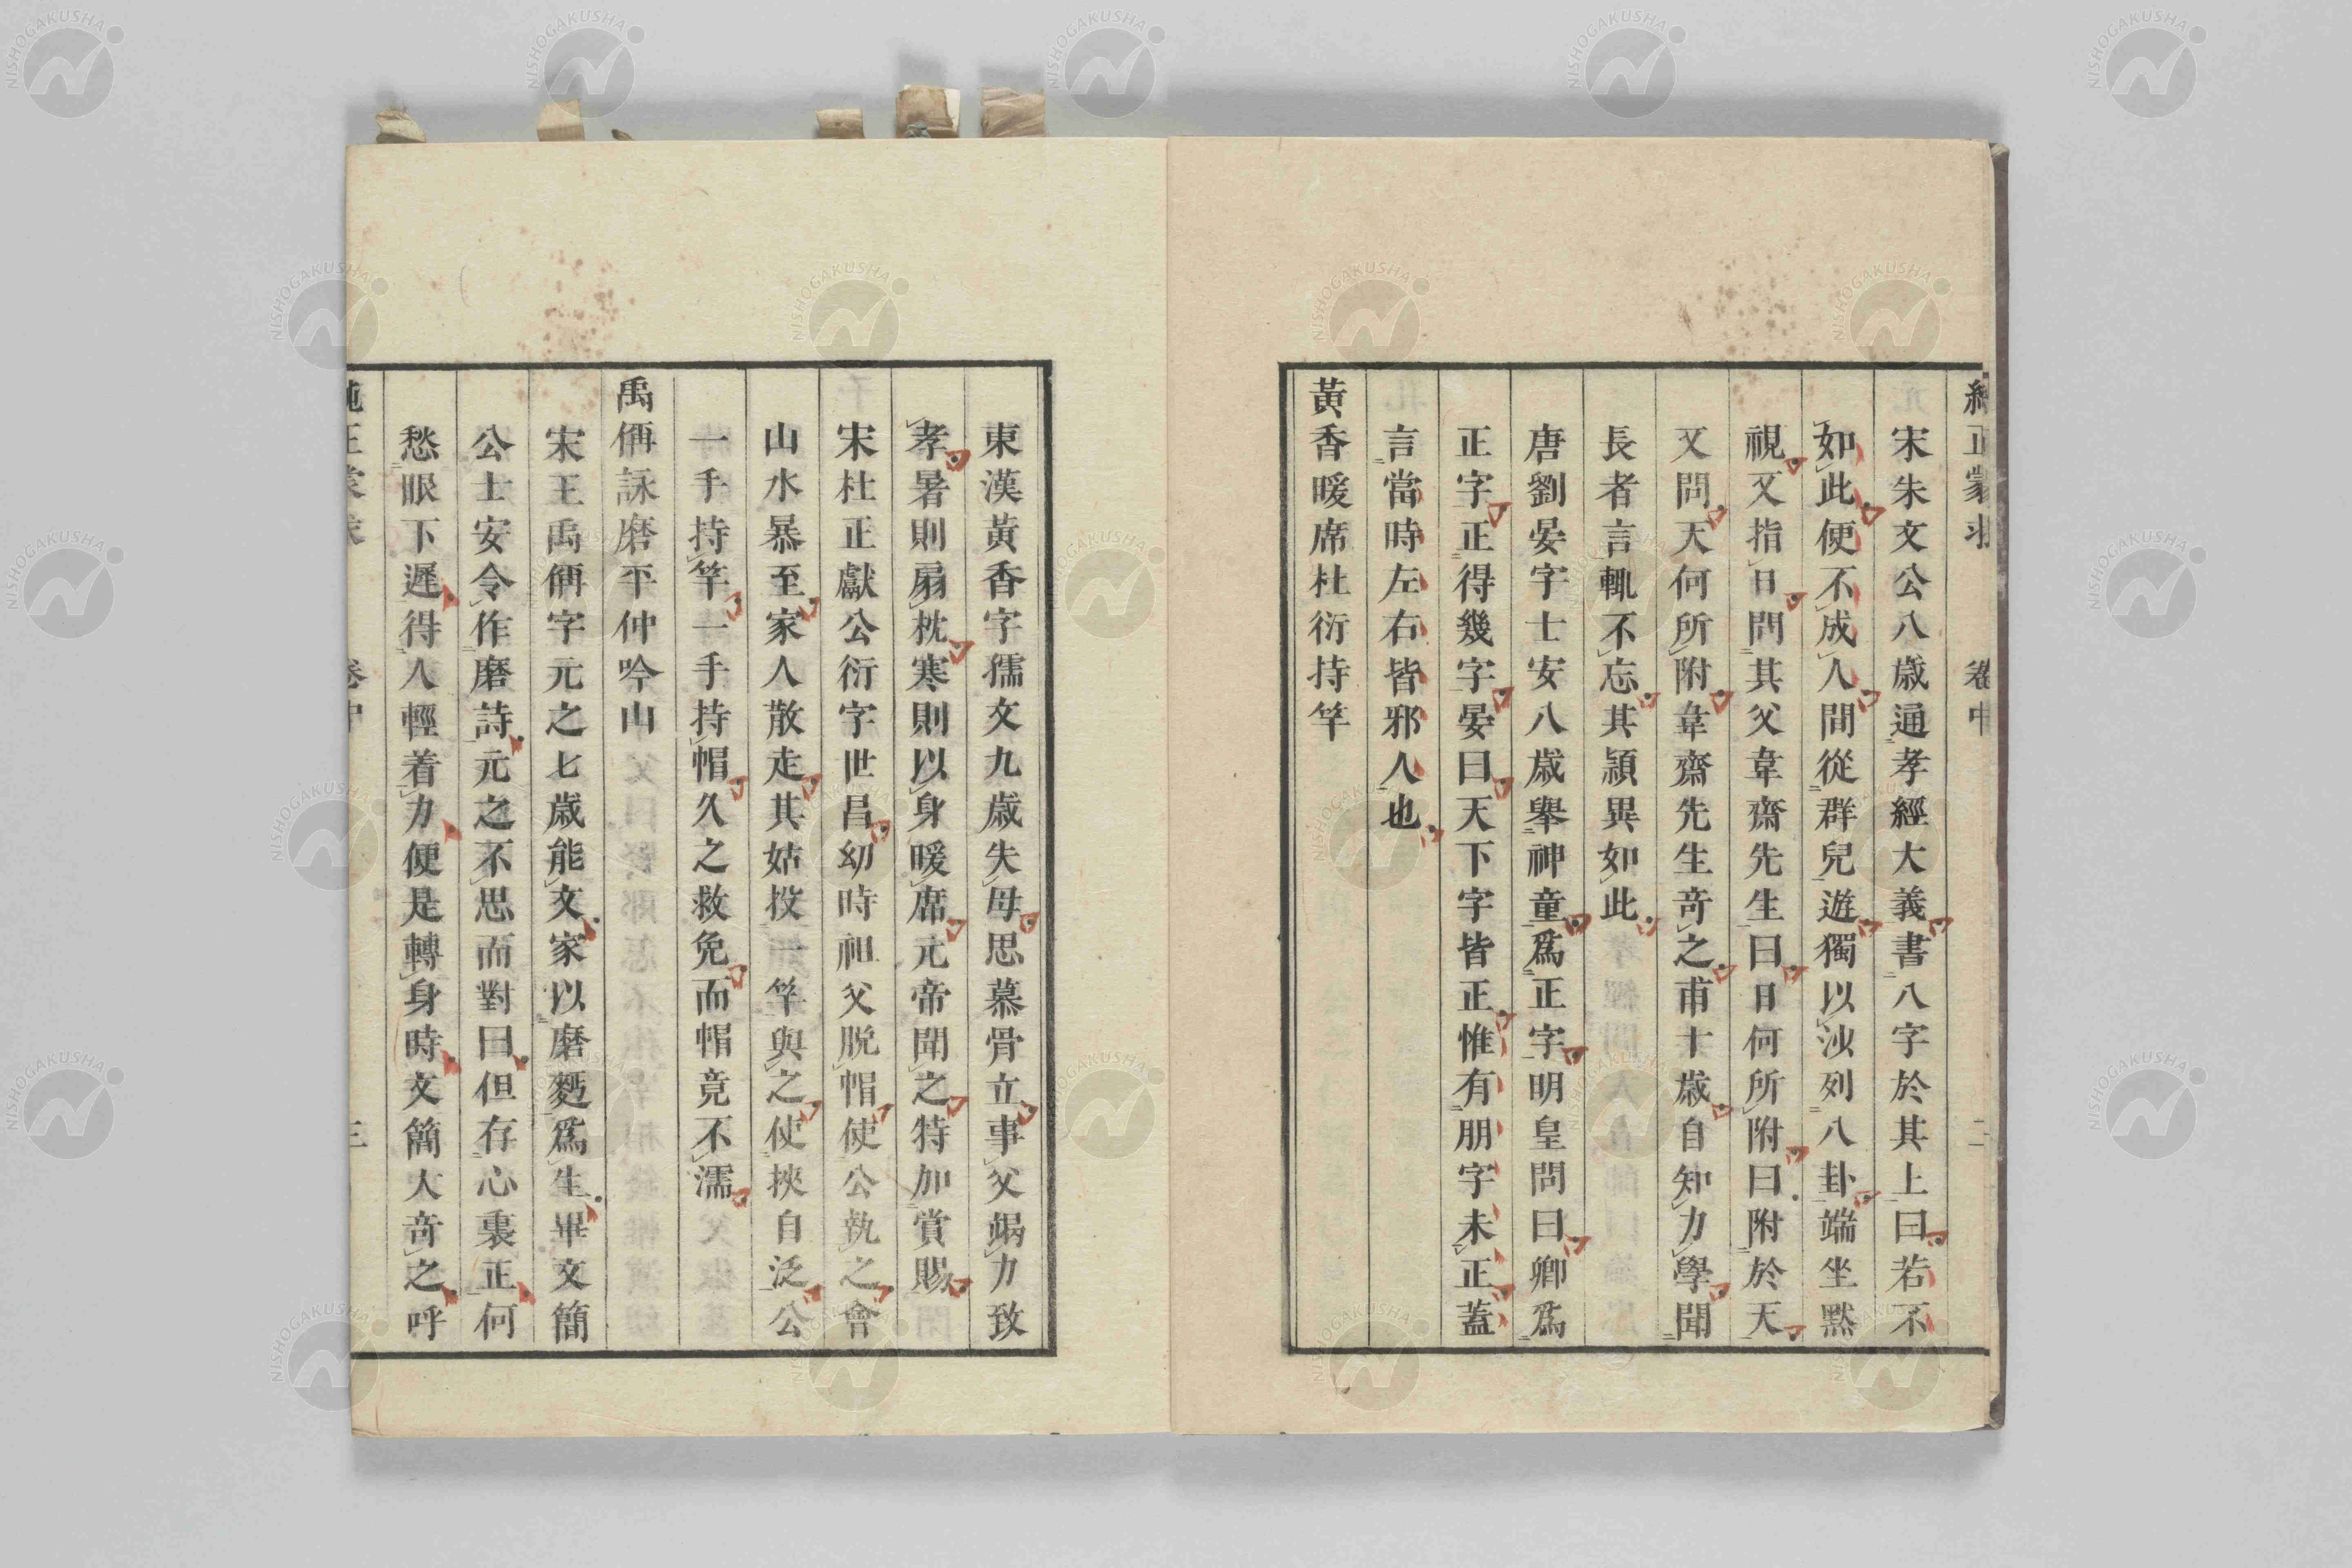 純正蒙求 卷中 二
宋朱文公八歳通孝經大義書八字於其上曰若不
如此便不成人間從群兒遊獨以沙列八卦端坐默
視又指日問其父韋齋先生曰日何所附曰附於天
又問天何所附韋齋先生奇之甫十歳自知力學聞
長者言輒不忘其頴異如此
唐劉晏字士安八歳舉神童爲正字明皇問曰卿爲
正字正得幾字晏曰天下字皆正惟有朋字未正蓋
言當時左右皆邪人也
黃香暖席杜衍持竿
東漢黃香字孺文九歳失母思慕骨立事父竭力致
孝暑則扇枕寒則以身暖席元帝聞之特加賞賜
宋杜正獻公衍字世昌幼時祖父脫帽使公執之會
山水暴至家人散走其姑投一竿與之使挾自泛公
一手持竿一手持帽久之救免而帽竟不濡
禹偁詠磨平仲吟山
宋王禹偁字元之七歳能文家以磨麪爲生畢文簡
公士安令作磨詩元之不思而對曰但存心裏正何
愁眼下遲得人輕着力便是轉身時文簡大奇之呼
純正蒙求 卷中 三
NISHOGAKUSHA